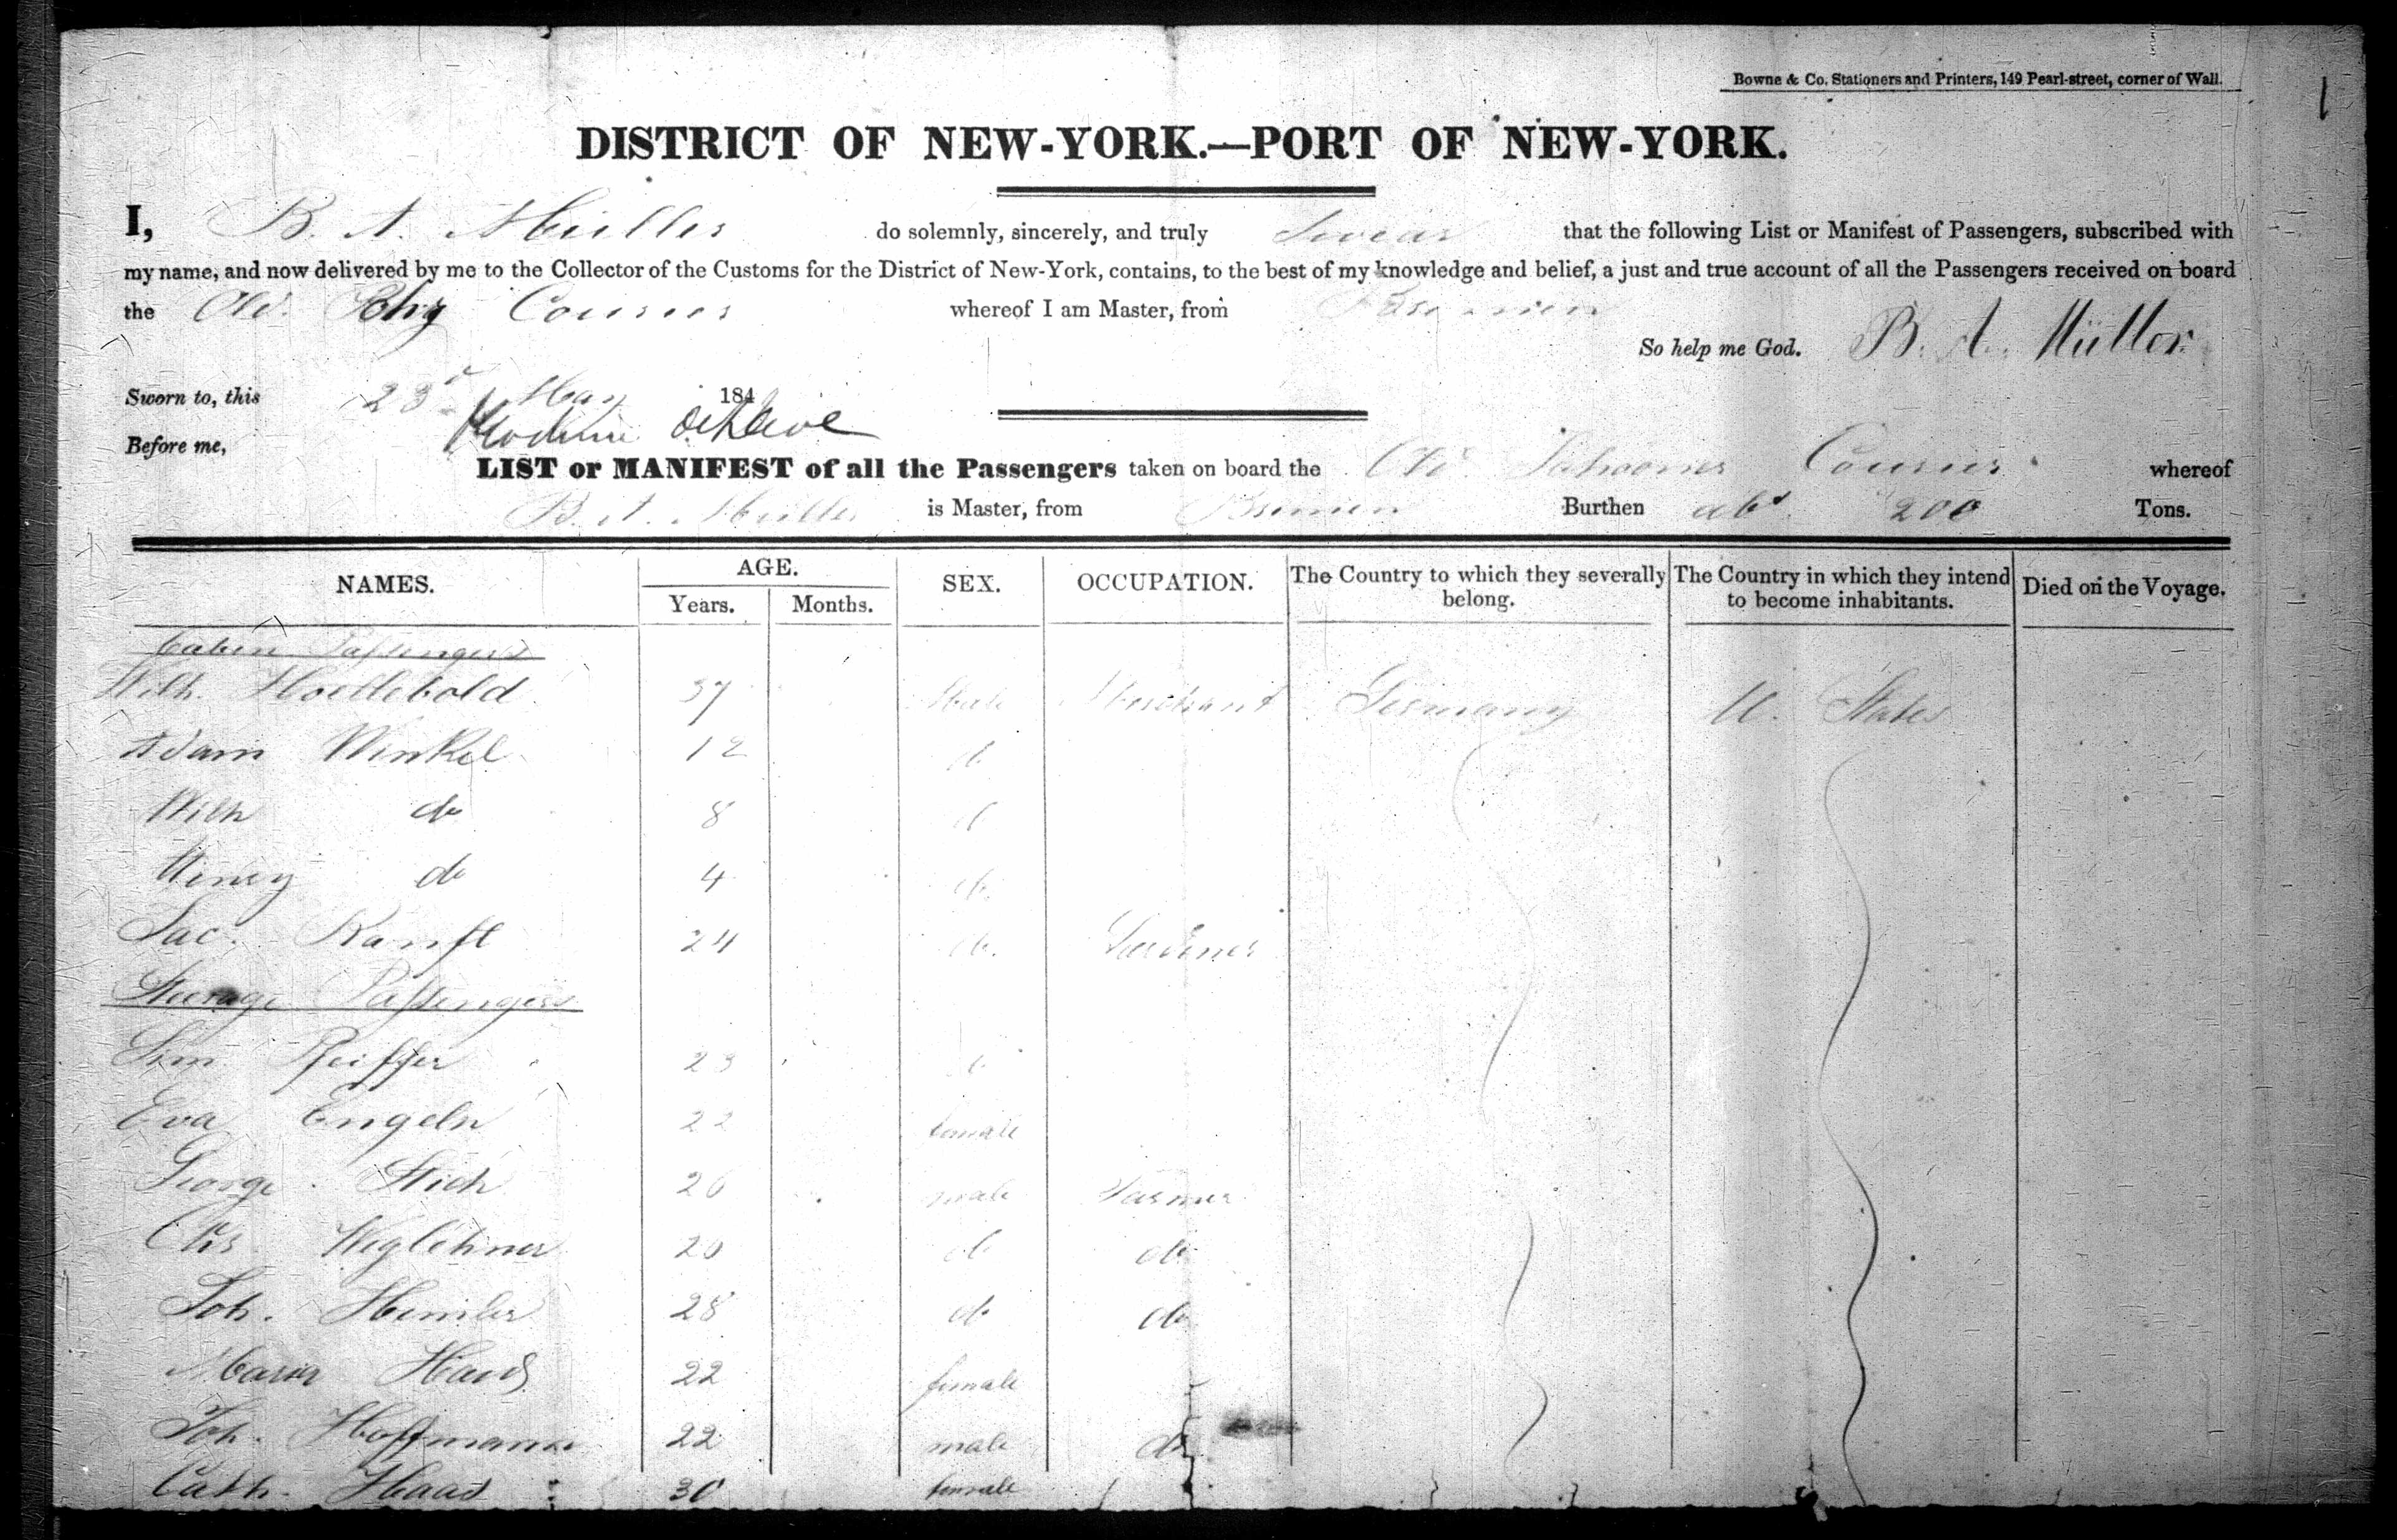 Bowne & Co. Stationers and Printers, 149 Pearl-street, corner of Wall.
1
DISTRICT OF NEW-YORK.—PORT OF NEW-YORK.
I, B. A. Müller do solemnly, sincerely, and truly Swear that the following List or Manifest of Passengers, subscribed with
my name, and now delivered by me to the Collector of the Customs for the District of New-York, contains, to the best of my knowledge and belief, a just and true account of all the Passengers received on board
the Old. Courier whereof I am Master, from Bremen
So help me God. B. A. Müller
Sworn to, this 23d May 184
Before me,
LIST or MANIFEST of all the Passengers taken on board the Old. Schooner Courier whereof
B. A. Müller is Master, from Bremen Burthen abt. 200 Tons.
NAMES. AGE. SEX. OCCUPATION. The Country to which they severally belong. The Country in which they intend to become inhabitants. Died on the Voyage.
Years. Months.
Cabin Passengers
Wilh. 37 Male Merchant Germany U. States
Adam Winkel 12 do
Wilh do 8 do
Henry do 4 do
Jac. Ranft 24 do. Gardener
Steerage Passengers
Sim Pfeiffer 23 do
Eva Engeln 22 female
George Stich 26 male Farmer
Chs 20 do do
Joh. 28 do do
Maria 22 female
Joh. Hoffmann 22 male do
Cath. Haas 30 female